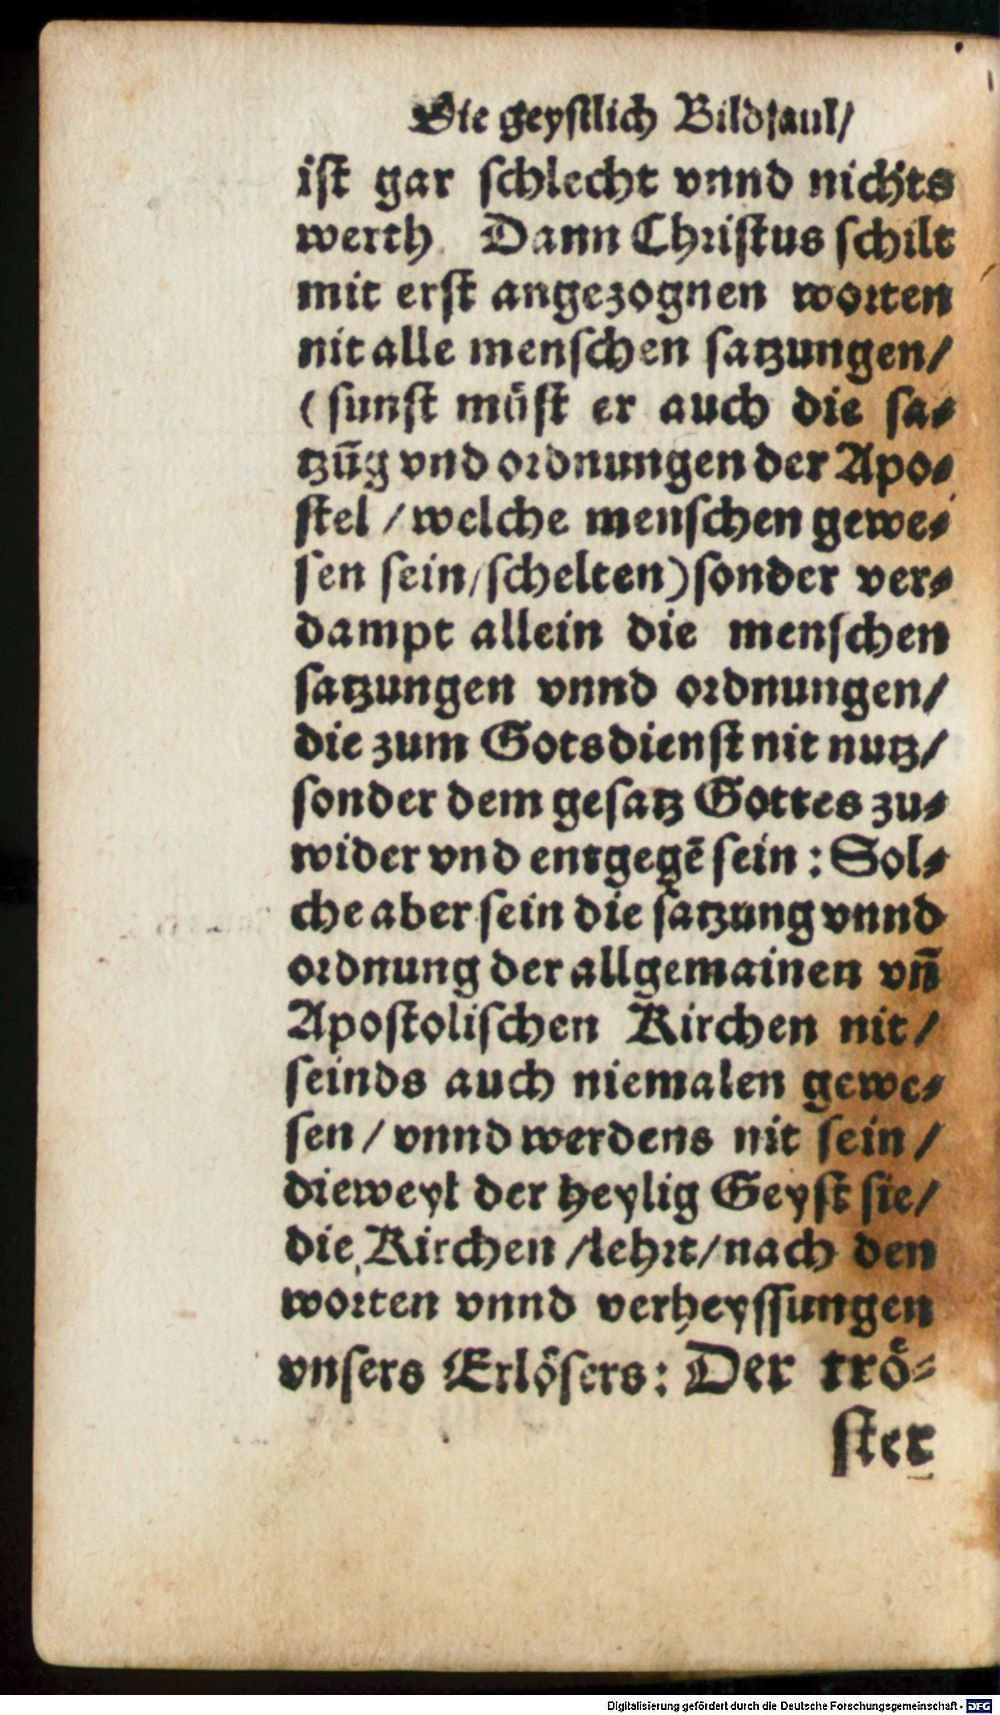 Die geystlich Bildsaul/
ist gar schlecht vnnd nichts
werth Dann Christus schilt
mit erst angezognen worten
nit alle menschen satzungen/
(sunst müst er auch die sa⸗
tzūg vnd ordnungen der Apo⸗
stel / welche menschen gewe⸗
sen sein/schelten) sonder ver⸗
dampt allein die menschen
satzungen vnnd ordnungen/
die zum Gotsdienst nit nutz/
sonder dem gesatz Gottes zu⸗
wider vnd entgegē sein : Sol⸗
che aber sein die satzung vnnd
ordnung der allgemainen vn̄
Apostolischen Kirchen nit/
seinds auch niemalen gewe⸗
sen / vnnd werdens nit sein/
dieweyl der heylig Geyst sie/
die Kirchen /lehrt/nach den
worten vnnd verheyssungen
vnsers Erlösers: Der trö⸗
ster
Digitalisierung gefördert durch die Deutsche Forschungsgemeinschaft - DFG